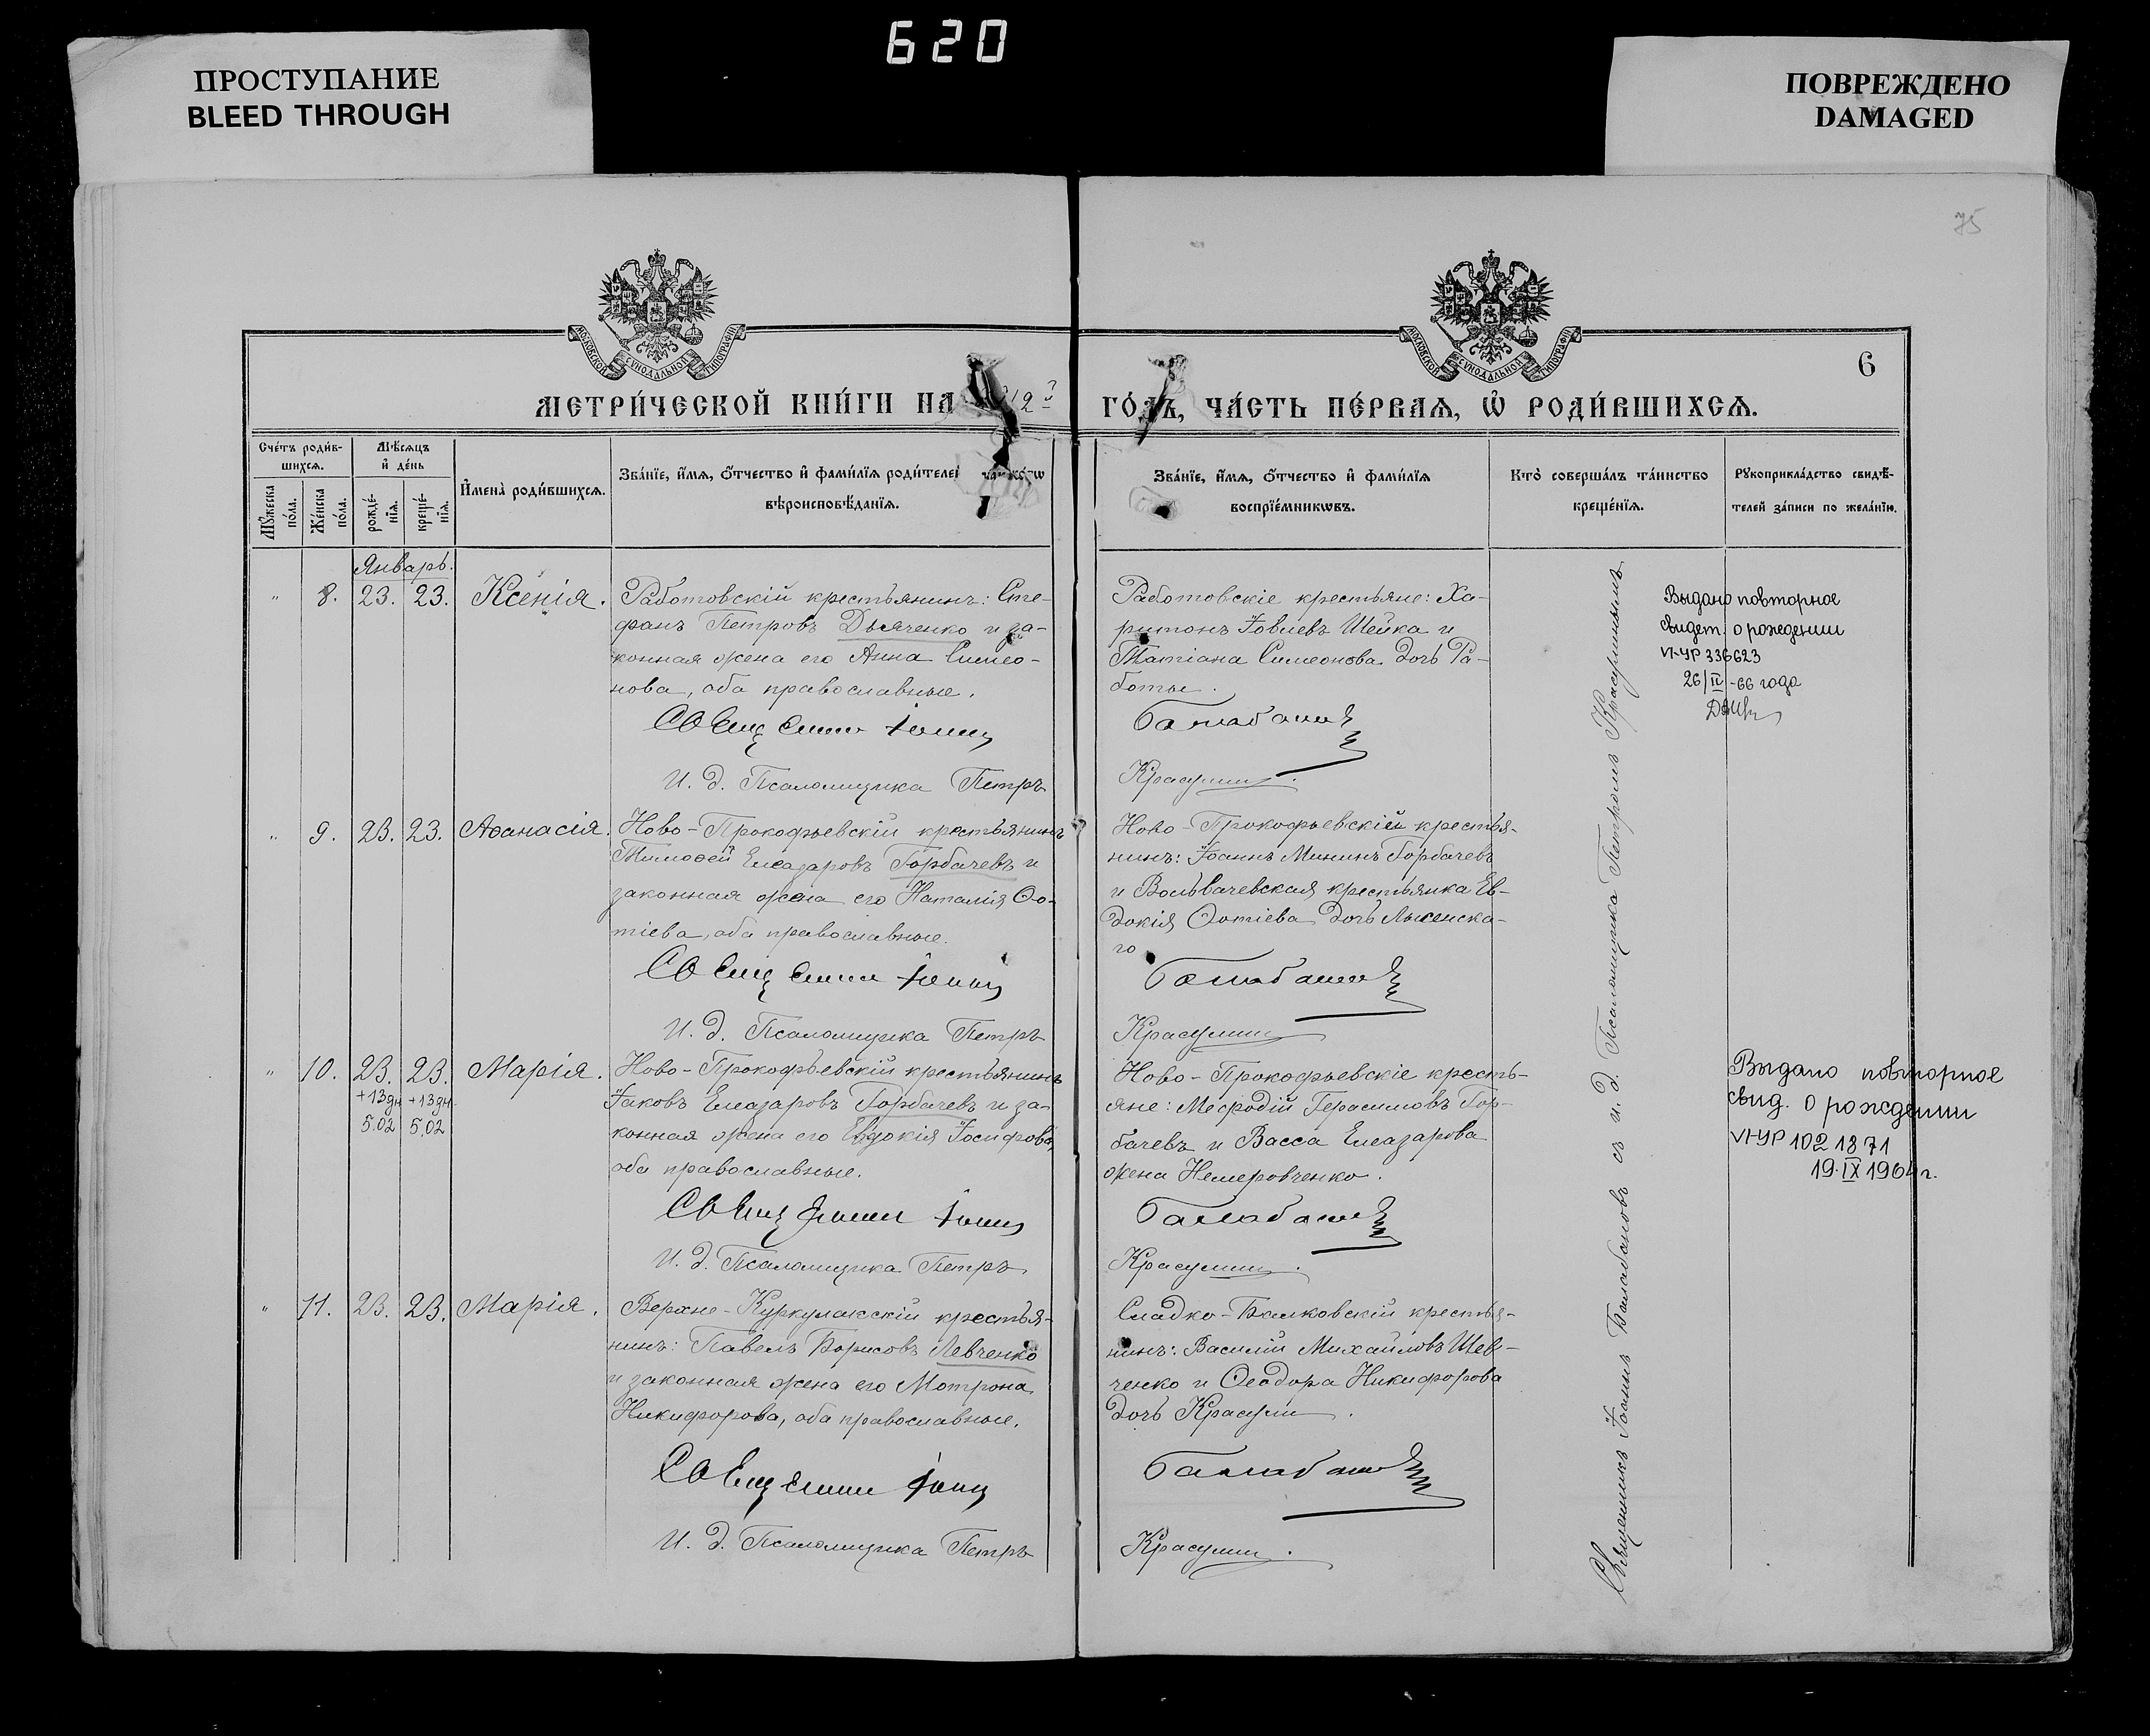 620
ПРОСТУПАНИЕ
BLEED THROUGH
ПОВРЕЖДЕНО
DAMAGED
75
МОСКОВСКОЙ СѴНОДАЛЬНОЙ ТИПОГРАФІИ
МОСКОВСКОЙ СѴНОДАЛЬНОЙ ТИПОГРАФІИ
6
МЕТРИ́ЧЕСКОЙ КНИ́ГИ НА 12
ГО́ДЪ, ЧА́СТЬ ПЕ́РВАѦ, Ѡ҆ РОДИ́ВШИХСѦ.
Сче́тъ роди́в-
шихсѧ.
Мѣ́сѧцъ
и҆ де́нь
Мꙋ́жеска
по́ла.
Же́нска
по́ла.
рожде́-
нїѧ.
креще́-
нїѧ.
И҆мена̀ роди́вшихсѧ.
Зва́нїе, и҆́мѧ, о҆́тчество и҆ фами́лїѧ роди́телей
вѣроисповѣ́данїѧ.
Зва́нїе, и҆́мѧ, о҆́тчество и҆ фами́лїѧ
воспрїе́мникѡвъ.
Кто̀ соверша́лъ та́инство
креще́нїѧ.
Рꙋкоприкла́дство свидѣ́-
телей за́писи по жела́нїю.
Январь.
" 8. 23. 23. Ксенія. Работовскій крестьянинъ: Сте-
фанъ Петровъ Дьяченко и за-
конная жена его Анна Симео-
нова, оба православные.
Священникъ Іоаннъ
И. д. Псаломщика Петръ
Работовскіе крестьяне: Ха-
ритонъ Іовлевъ Шейка и
Татіана Симеонова дочь Ра-
боты.
Балабановъ
Красулинъ.
Выдано повторное
свидет. о рождении
VI-УР 336623
26/IV-66 года
" 9. 23. 23. Аѳанасія. Ново-Прокофьевскій крестьянинъ
Тимоѳей Елеазаровъ Горбачевъ и
законная жена его Наталія Фо-
тіева, оба православные.
Священникъ Іоаннъ
И. д. Псаломщика Петръ
Ново-Прокофьевскій крестья-
нинъ: Іоаннъ Мининъ Горбачевъ
и Вольвачевская крестьянка Ев-
докія Фотіева дочь
го
Балабановъ
Красулинъ
" 10. 23. 23. Марія. Ново-Прокофьевскій крестьянинъ
+13дн +13дн
5.02 5.02
Іаковъ Елеазаровъ Горбачевъ и за-
конная жена его Евдокія Іосифова,
оба православные.
Священникъ Іоаннъ
И. д. Псаломщика Петръ
Ново-Прокофьевскіе кресть-
яне: Меѳодій Герасимовъ Гор-
бачевъ и Васса Елеазарова
жена Немеровченко.
Балабановъ
Красулинъ.
Выдано повторное
свид. о рождении
VI-УР 1021871
19.IX 1964г.
" 11. 23. 23. Марія. Верхне-Куркулакскій крестья-
нинъ: Павелъ Борисовъ Левченко
и законная жена его Мотрона
Никифорова, оба православные.
Священникъ Іоаннъ
И. д. Псаломщика Петръ
Сладко-Балковскій крестья-
нинъ: Василій Михайловъ Шев-
ченко и Ѳеодора Никифорова
дочь
Балабановъ
Красулинъ.
Священникъ Іоаннъ Балабановъ съ и. д. Псаломщика Петромъ Красулинымъ